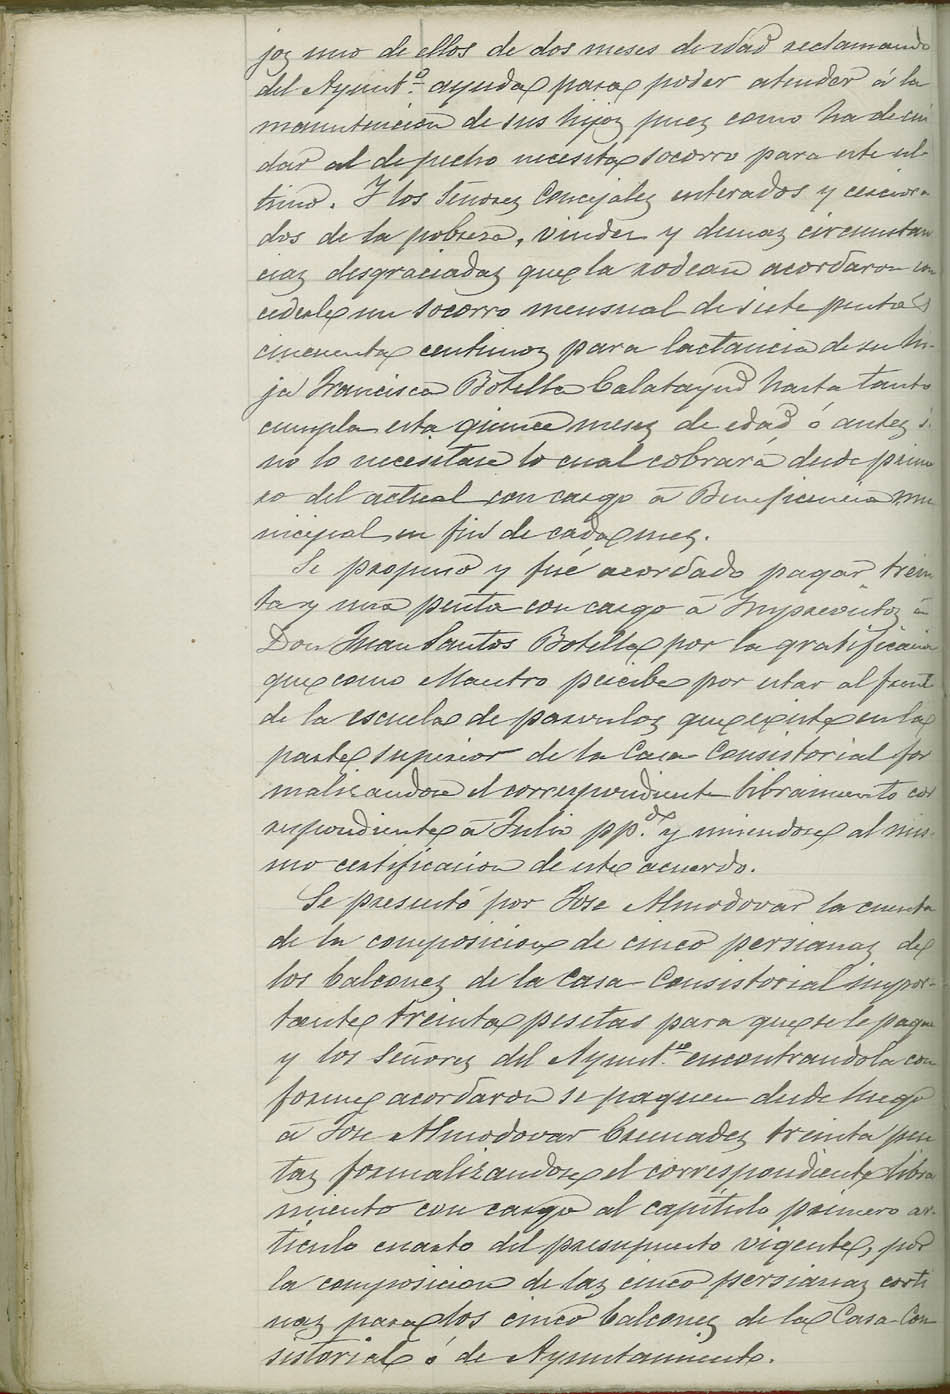 jos uno de ellos de dos meses de edad reclamando
del Ayunt.º ayuda para poder atender á la
manutención de sus hijos pues como ha de cui
dar al de pecho necesita socorro para este ul-
timo. Y los Señores Concejales enterados y cerciora
dos de la pobreza, viudez y demas circunstan
cias desgraciadas que la rodean acordaron con
cederle un socorro mensual de siete pesetas
cincuenta centimos para lactancia de su hi-
ja Francisca Botella Calatayud hasta tanto
cumpla esta quince meses de edad ó antes si
no lo necesitase lo cual cobrará desde prime
ro del actual con cargo á Beneficencia mu
nicipal en fin de cada mes.
Se propuso y fué acordado pagar trein
ta y una peseta con cargo á Imprevistos á
Don Juan Santos Botella por la gratificacion
que como Maestro percibe por estar al frente
de la escuela de parvulos que existe en la
parte superior de la Casa Consistorial for
malizandose el correspondiente libramiento cor
respondiente á Julio pp.do y uniendose al mis-
mo certificacion de este acuerdo.
Se presentó por Jose Almodovar la cuenta
de la composicion de cinco persianas de
los balcones de la Casa Consistorial impor-
tante treinta pesetas para que se le pague
y los Señores del Ayunt.º encontrandola con
forme acordaron se paguen desde luego
á Jose Almodovar Cremades treinta pese
tas formalizandose el correspondiente libra
miento con cargo al capítulo primero ar-
ticulo cuarto del presupuesto vigente, por
la composicion de las cinco persianas corti
nas para los cinco balcones de la Casa Con
sistorial ó de Ayuntamiento.